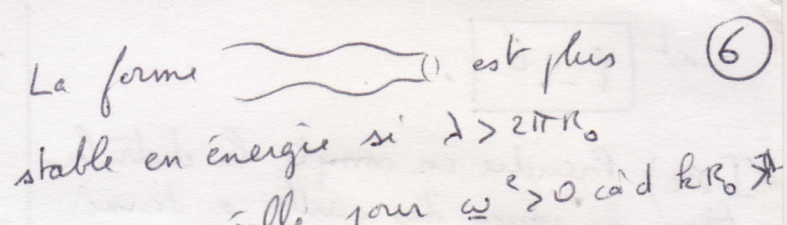 La forme est plus ⑥
stable en énergie si λ > 2πR₀
pour ω² > 0 càd kR₀ >